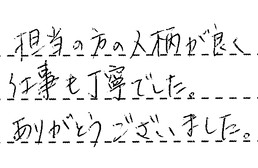 担当の方の人柄が良く
仕事も丁寧でした。
ありがとうございました。